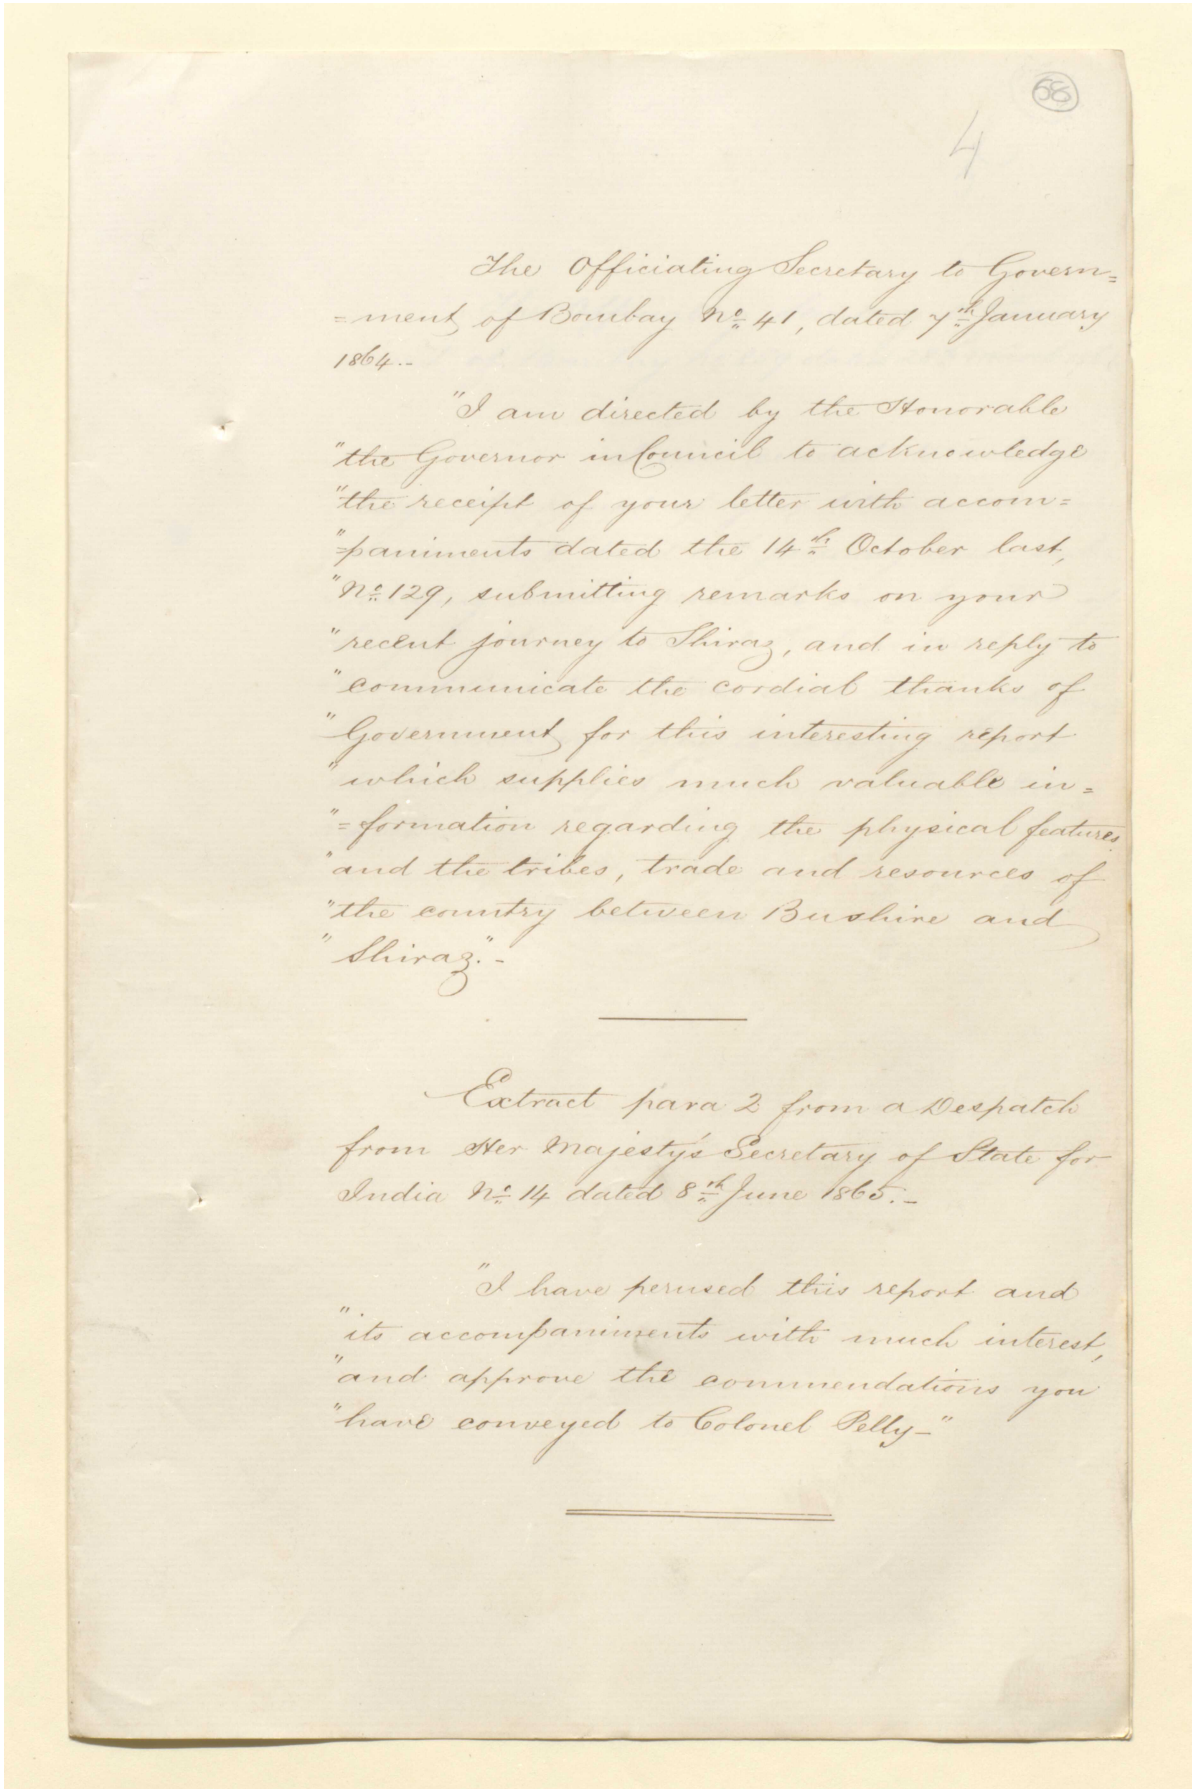 58
4
The Officiating Secretary to Govern=
=ment of Bombay No. 41, dated 7th January
1864.-
"I am directed by the Honorable
"the Governor in Council to acknowledge
"the receipt of your letter with accom=
"=paniments dated the 14th October last,
"No. 129, submitting remarks on your
"recent journey to Shiraz, and in reply to
"communicate the cordial thanks of
"Government for this interesting report
"which supplies much valuable in=
"=formation regarding the physical features
"and the tribes, trade and resources of
"the country between Bushire and
"Shiraz."-
Extract para 2 from a Despatch
from Her Majesty's Secretary of State for
India No. 14 dated 8th June 1865.-
"I have perused this report and
"its accompaniments with much interest,
"and approve the commendations you
"have conveyed to Colonel Pelly-"